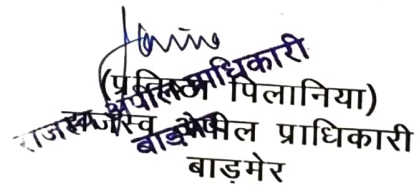 (प्रतिष्ठा पिलानिया)
राजस्व अपील प्राधिकारी
बाड़मेर
राजस्व अपील प्राधिकारी
बाड़मेर